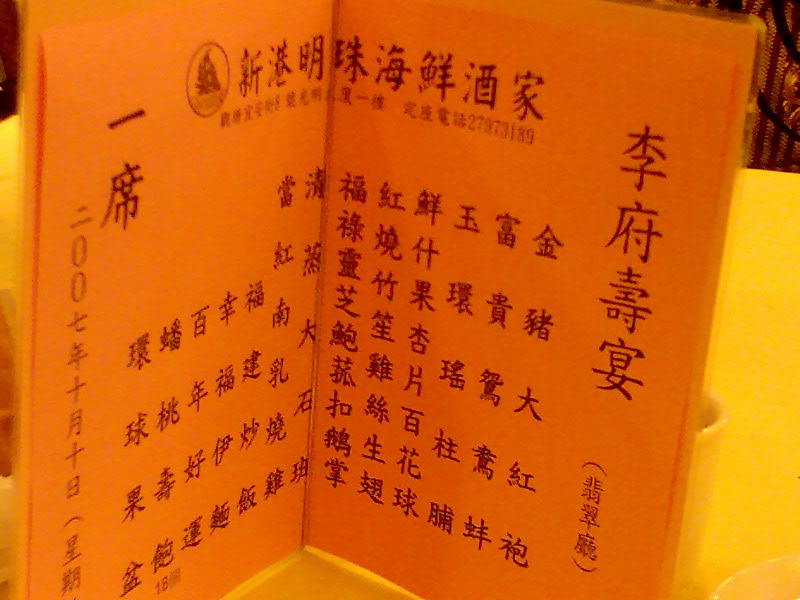 新港明珠海鮮酒家
一樓 定座電話27973189
李府壽宴
(翡翠廳)
金豬大紅袍
富貴鴛鴦蚌
玉環瑤柱脯
鮮什果杏片百花球
紅燒竹笙雞絲生翅
福祿靈芝鮑菰扣鵝掌
清蒸大石斑
當紅南乳燒雞
福建炒飯
幸福伊麵
百年好運
蟠桃壽飽 18個
環球果盆
一席
二〇〇七年十月十日(星期